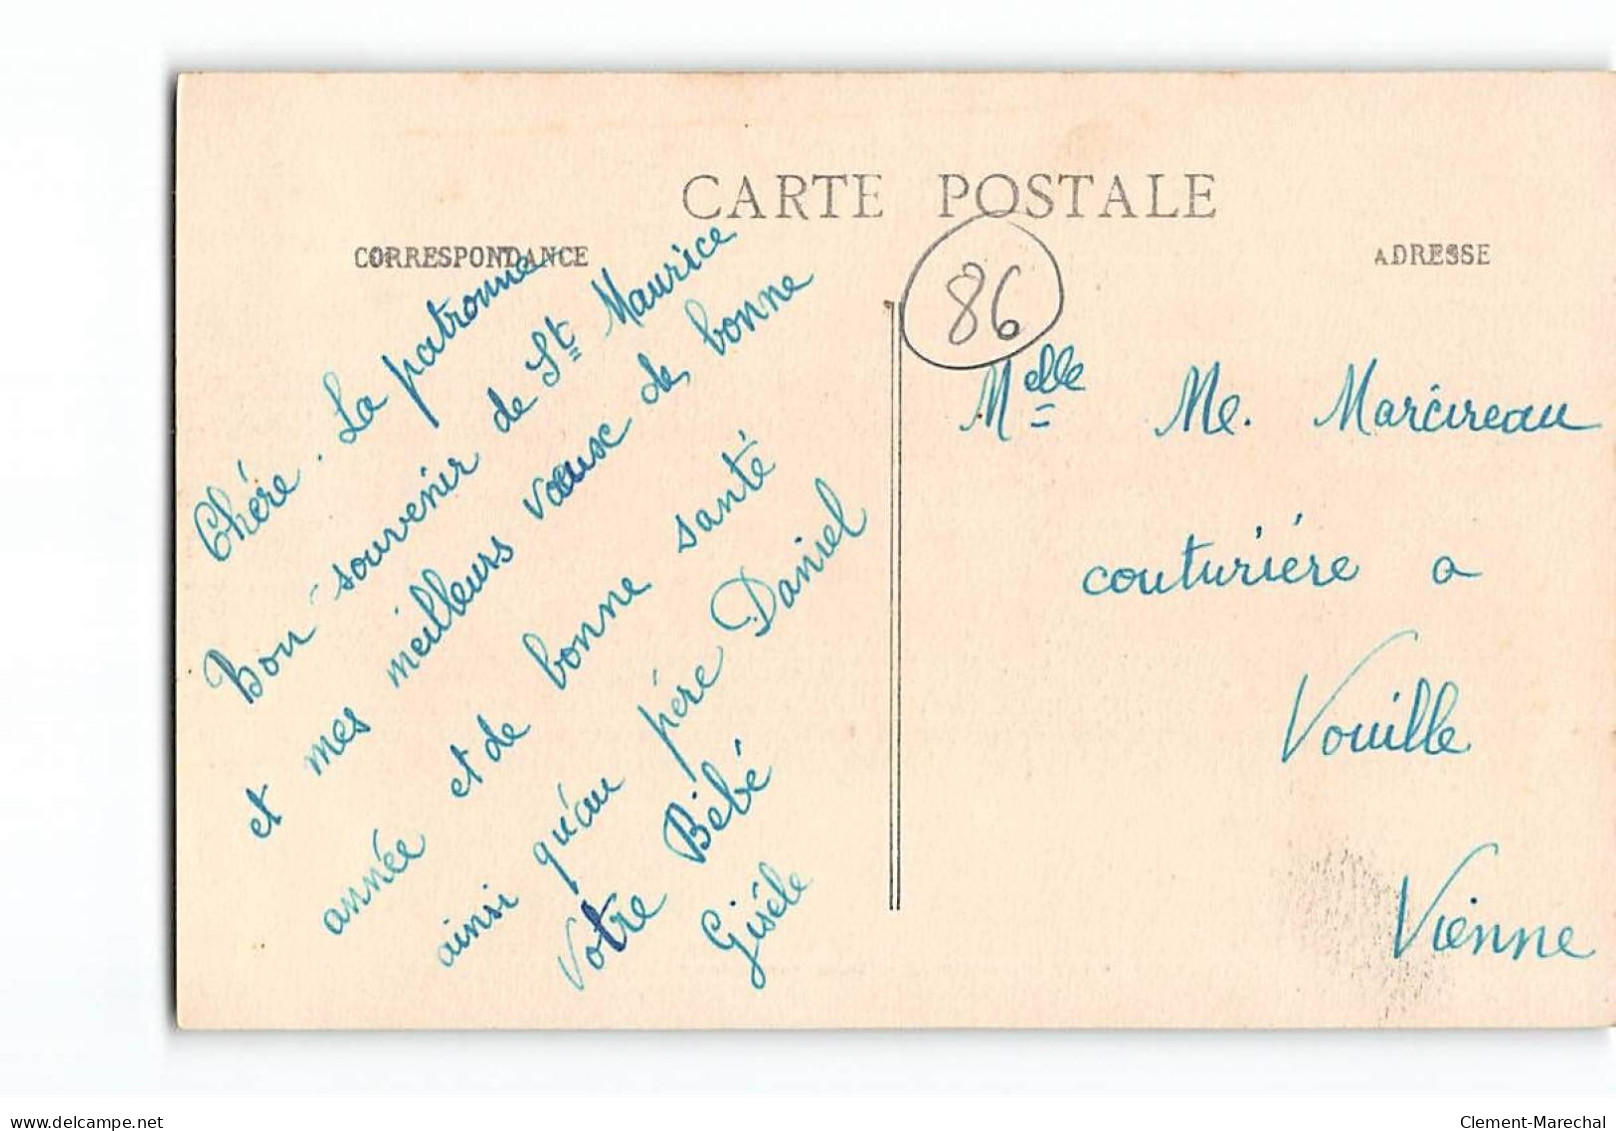 CARTE POSTALE
CORRESPONDANCE
ADRESSE
86
Chére. La patronne
Bon souvenir de St Maurice
et mes meilleurs vœux de bonne
année et de bonne santé
ainsi qu'au pére Daniel
Votre Bébé
Giséle
Melle Me. Marcireau
couturiére a
Vouille
Vienne
www.delcampe.net
Clement-Marechal